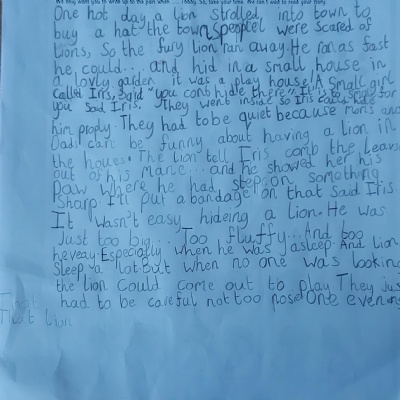 One hot day a lion strolled, into town to
buy a hat the townspeople! were scared of
Lions, So the fury lion ran away. He ran as fast
he could... and hid in a small house in
a lovly garden it was a play house! A small girl
called Iris, said "you canb hide there" It is to small for
you Said Iris. They went inside so Iris could hide
him proply. They had to be quiet because Moms and
Dad can be funny about having a lion in
the houes. The lion tell Iris comb the leavs
out of his mane... and he showed her his
paw where he had step on something
sharp. I'll put a bandage on that said Iris.
It wasn't easy hideing a lion. He was
Just too big... Too fluffy... And too
heveay. Especially when he was asleep. And Lion
Sleep a lot. But when no one was looking
the lion could come out to play They Jus
had to be careful not too nose One evening
That
That lion